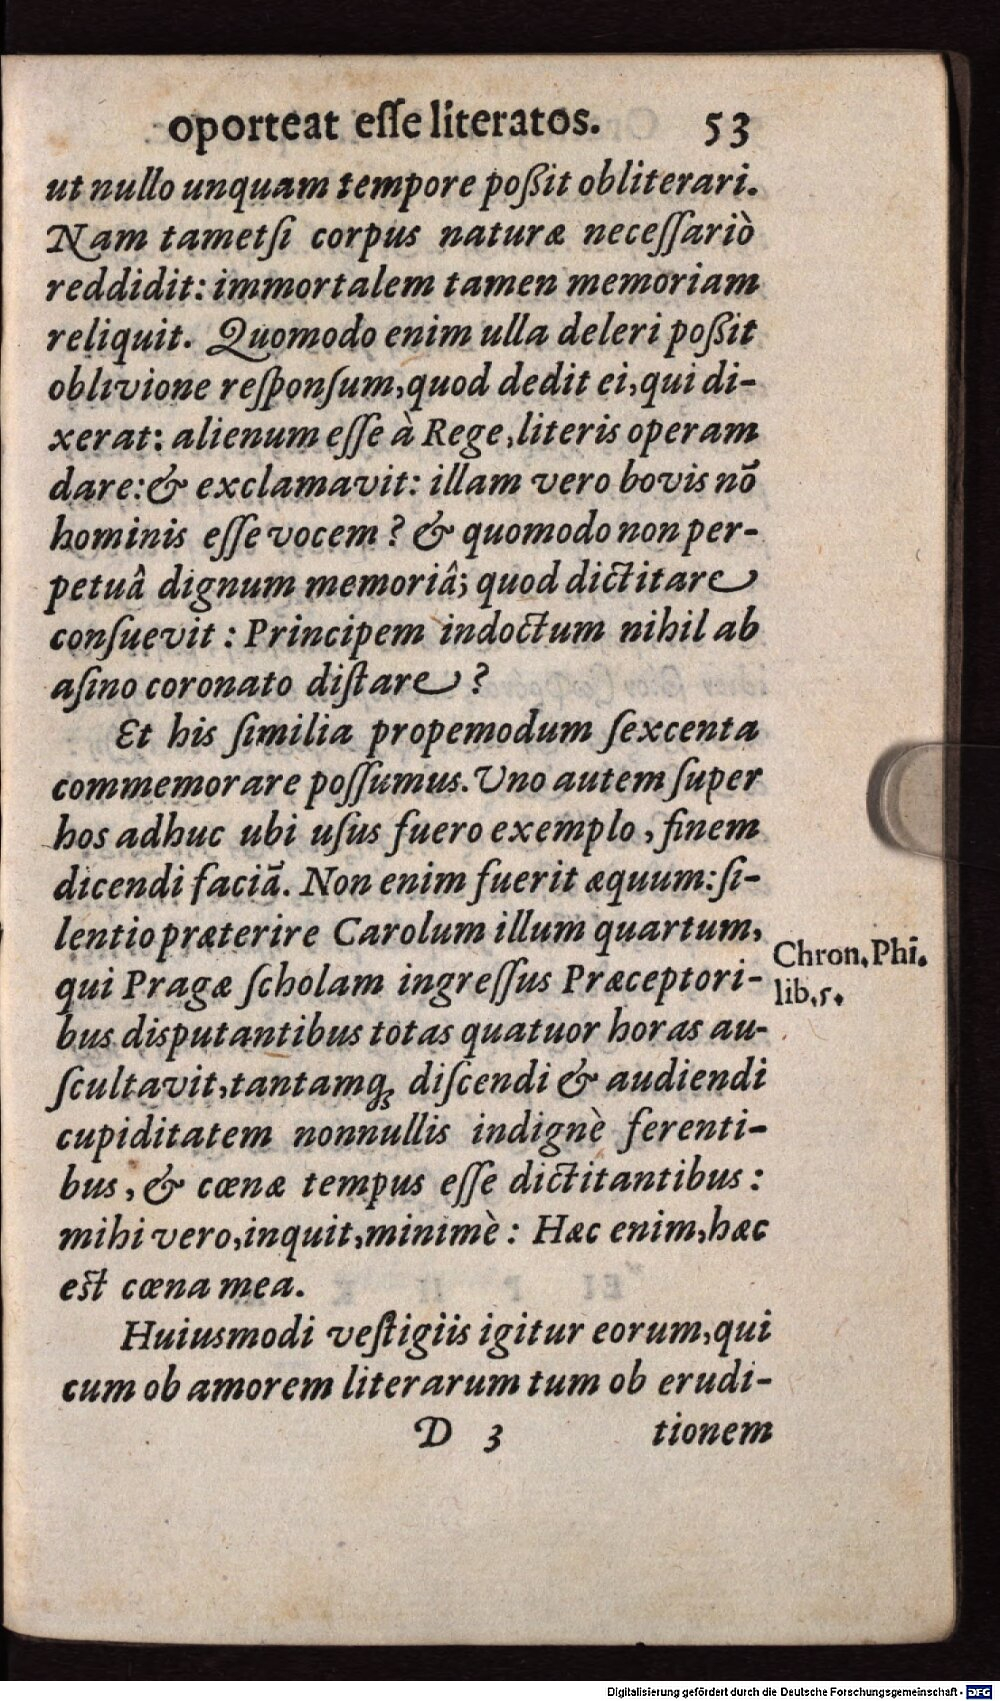 oporteat eſſe literatos. 53
ut nullo unquam tempore poßit obliterari.
Nam tametſi corpus naturæ neceſſariò
reddidit: immortalem tamen memoriam
reliquit. Quomodo enim ulla deleri poßit
oblivione reſponſum, quod dedit ei, qui di-
xerat: alienum eſſe à Rege, literis operam
dare: & exclamavit: illam vero bovis nõ
hominis eſſe vocem? & quomodo non per-
petuâ dignum memoriâ; quod dictitare
conſuevit: Principem indoctum nihil ab
aſino coronato diſtare?
Et his ſimilia propemodum ſexcenta
commemorare poſſumus. Uno autem ſuper
hos adhuc ubi uſus fuero exemplo, finem
dicendi faciã. Non enim fuerit æquum: ſi-
lentio præterire Carolum illum quartum,
qui Pragæ ſcholam ingreſſus Præceptori-
bus disputantibus totas quatuor horas au-
ſcultavit, tantamq́; diſcendi & audiendi
cupiditatem nonnullis indignè ferenti-
bus, & cœnæ tempus eſſe dictitantibus:
mihi vero, inquit, minimè: Hæc enim, hæc
eſt cœna mea.
Chron. Phi.
lib. 5.
Huiusmodi veſtigiis igitur eorum, qui
cum ob amorem literarum tum ob erudi-
D 3 tionem
Digitalisierung gefördert durch die Deutsche Forschungsgemeinschaft - DFG